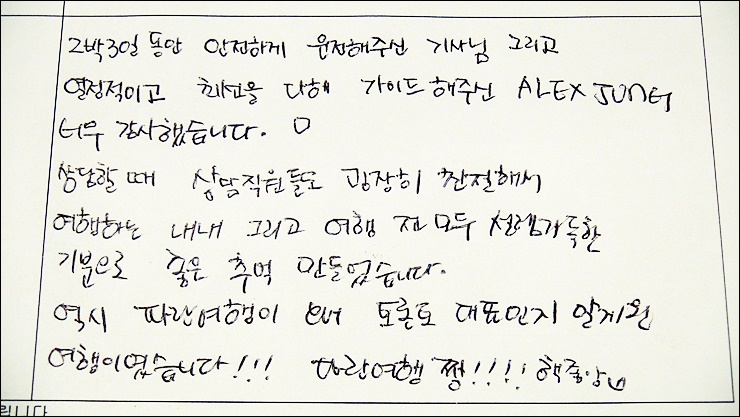 2박3일 동안 안전하게 운전해주신 기사님 그리고
열정적이고 최선을 다해 가이드해주신 ALEX JUNG
너무 감사했습니다.
상담할 때 상담직원들도 굉장히 친절해서
여행하는 내내 그리고 여행 전 모두 설렘가득한
기분으로 좋은 추억 만들었습니다.
역시 파란여행이 왜 토론토 대표인지 알게된
여행이였습니다!!! 파란여행 짱!!!! 핵좋아
립니다